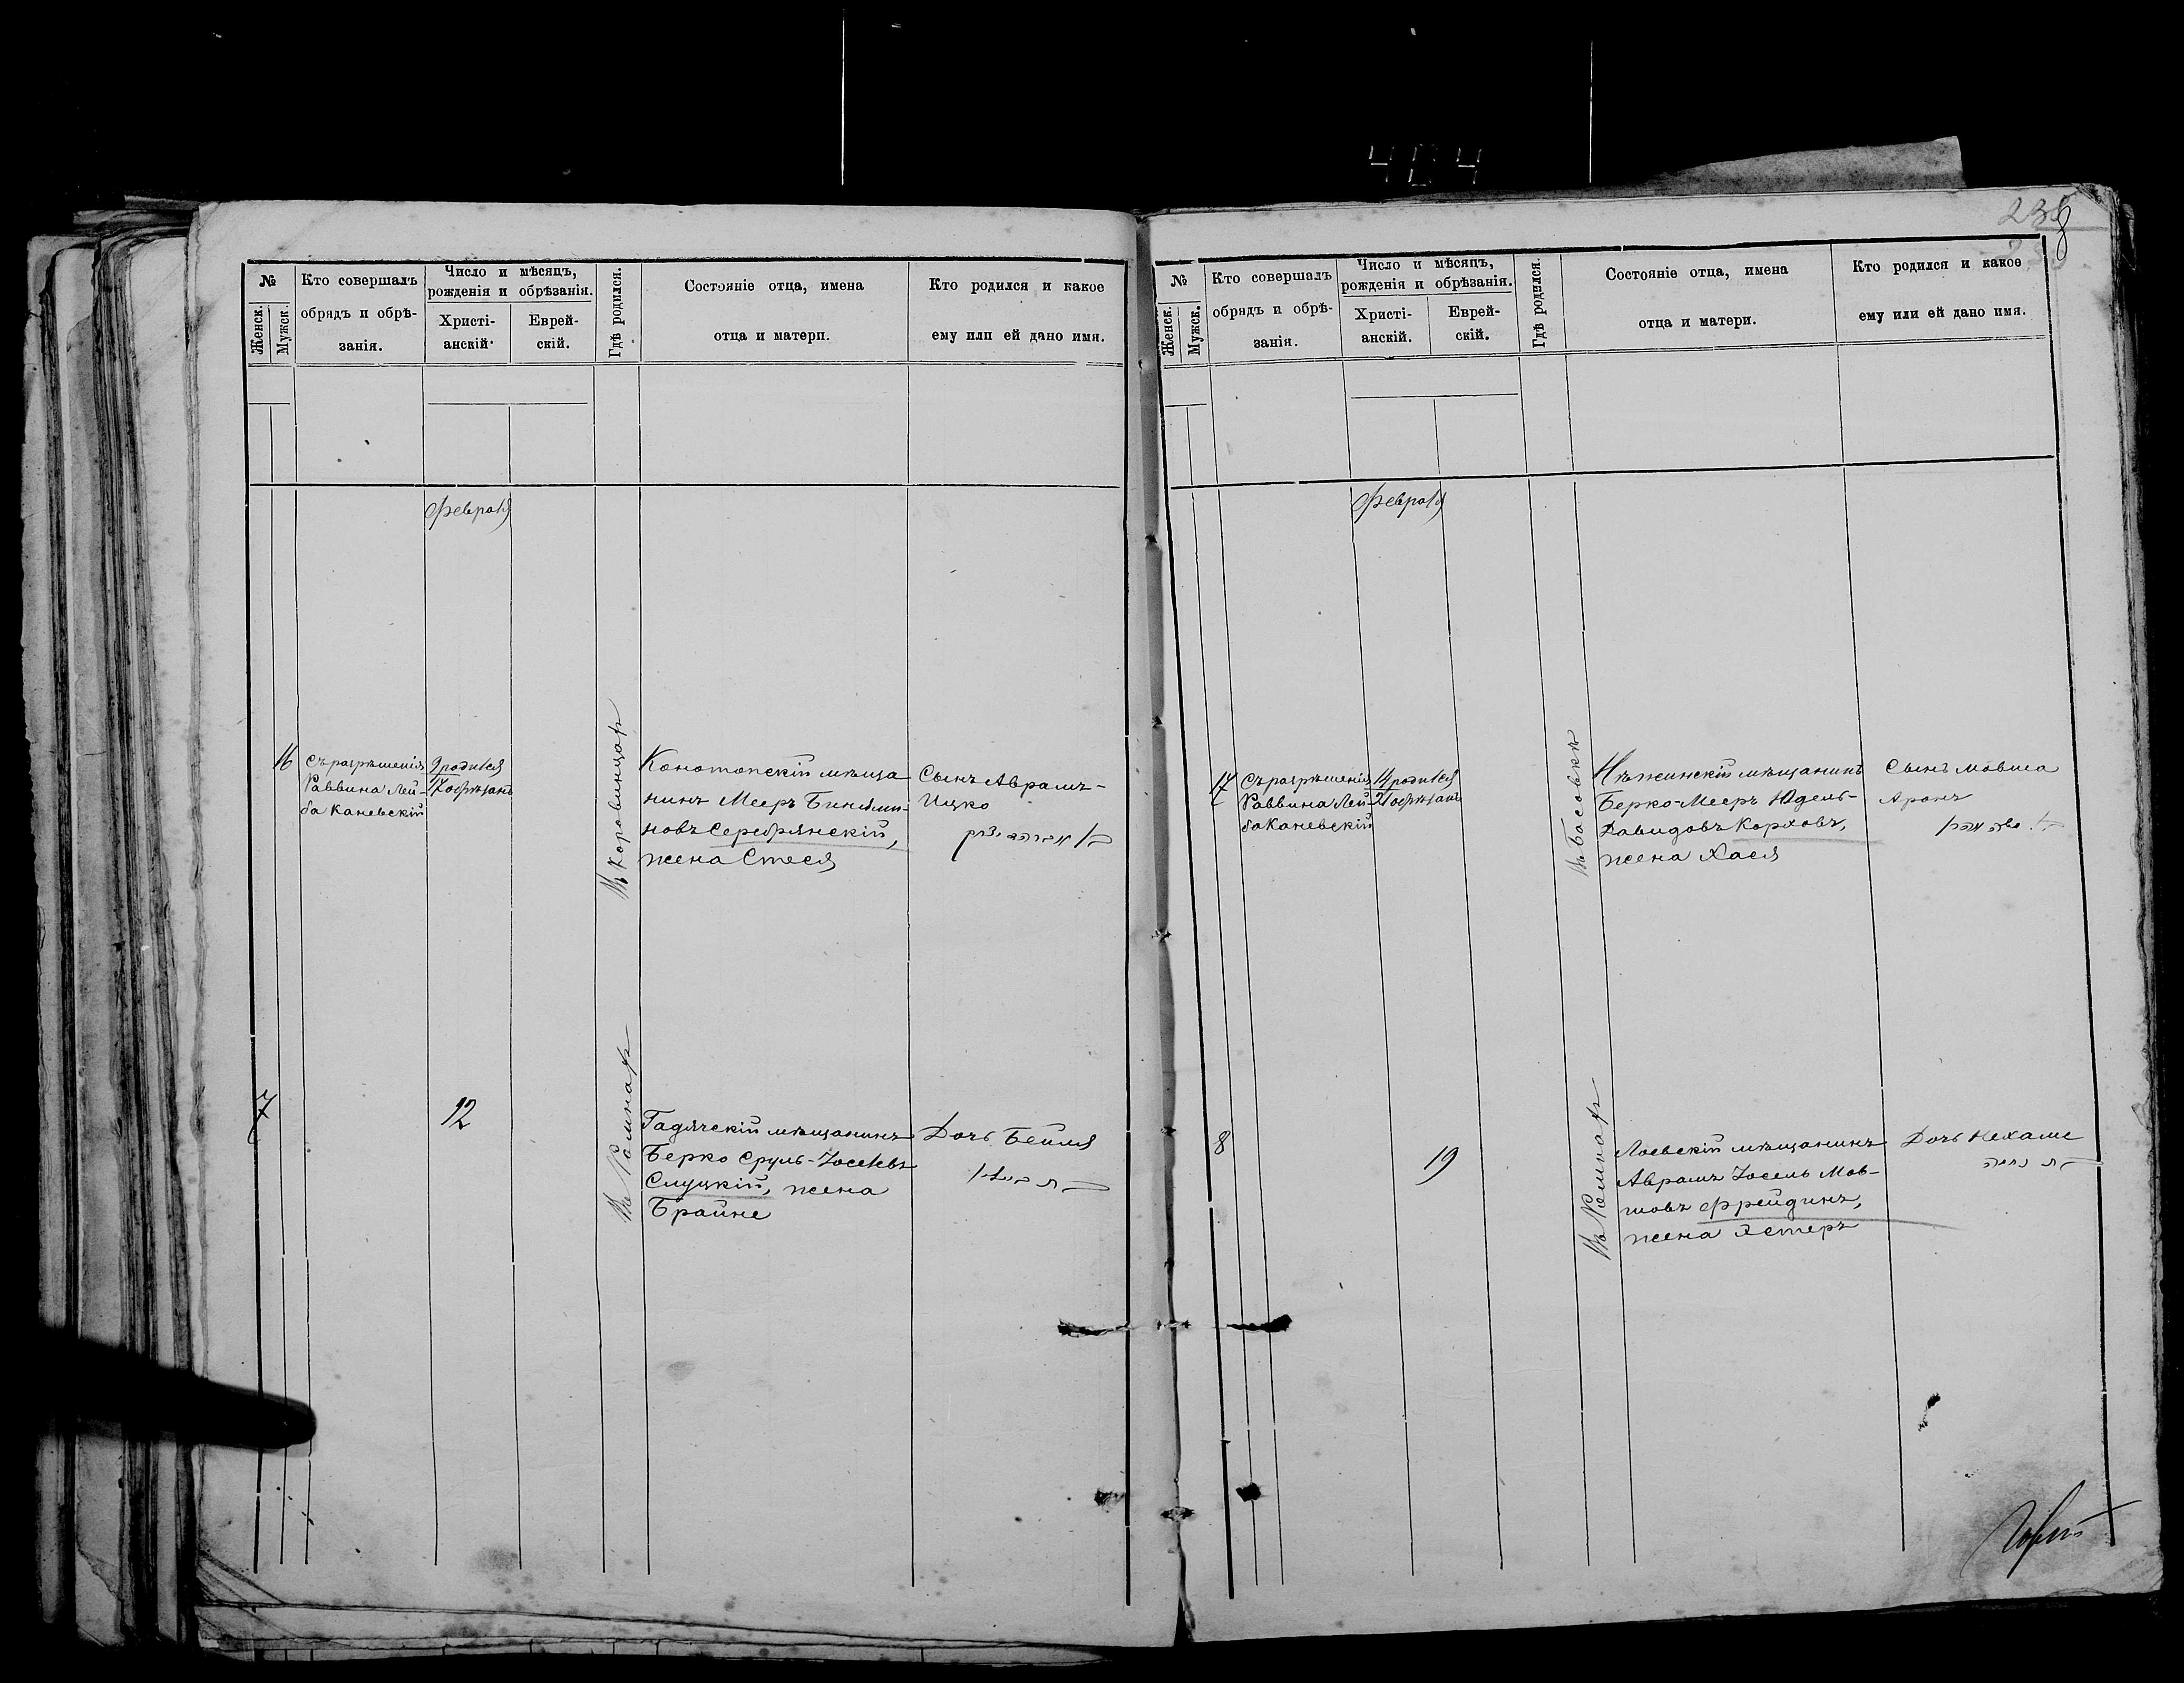 404
238
№
Женск.
Мужск.
Кто совершалъ
обрядъ и обрѣ-
занія.
Число и мѣсяцъ,
рожденія и обрѣзанія.
Христі-
анскій.
Еврей-
скій.
Гдѣ родился.
Состояніе отца, имена
отца и матери.
Кто родился и какое
ему или ей дано имя.
Февраля
16
Съ разрѣшенія
Раввина Лей-
ба Каневскій
9 родился
17 обрѣзанъ
въ Коровинцахъ
Конотопскій мѣща
нинъ Мееръ Бинями-
новъ Серебрянскій,
жена Стеся
Сынъ Аврамъ-
Ицко
7
12
въ Ромнахъ
Гадячскій мѣщанинъ
Берко Сруль-Іоселевъ
Слуцкій, жена
Брайне
Дочь Бейля
№
Женск.
Мужск.
Кто совершалъ
обрядъ и обрѣ-
занія.
Число и мѣсяцъ,
рожденія и обрѣзанія.
Христі-
анскій.
Еврей-
скій.
Гдѣ родился.
Состояніе отца, имена
отца и матери.
Кто родился и какое
ему или ей дано имя.
Февраля
17
Съ разрѣшенія
Раввина Лей-
ба Каневскій
14 родился
21 обрѣзанъ
въ Басовкѣ
Нѣжинскій мѣщанинъ
Берко-Мееръ Юдель-
Давидовъ Корховъ,
жена Хася
Сынъ Мовша
Аронъ
8
19
въ Ромнахъ
Лоевскій мѣщанинъ
Аврамъ Іосель Мов-
шовъ Фрейдинъ,
жена Эстеръ
Дочь Нехаме